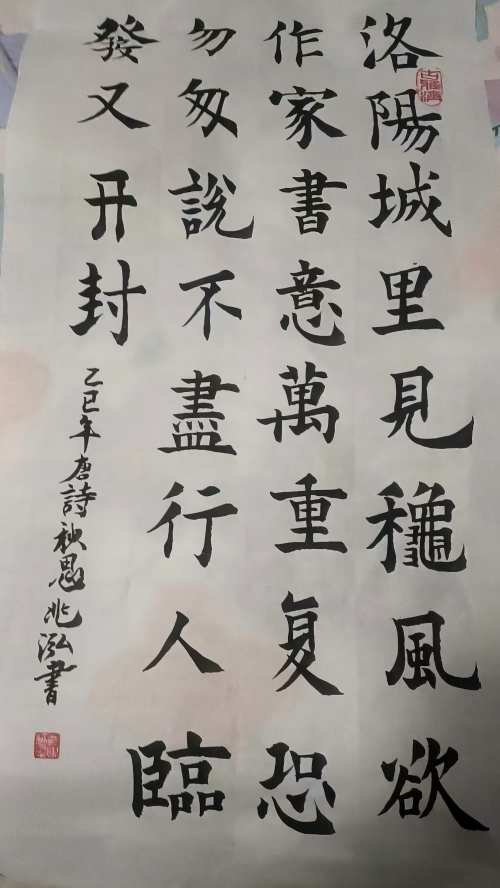 洛陽城里見龝風欲
作家書意萬重复恐
勿匆說不盡行人臨
發又开封
乙巳年唐詩秋思兆泓書